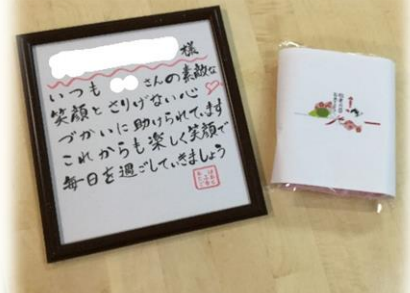 様
いつも さんの素敵な
笑顔とさりげない心
づかいに助けられています
これからも楽しく笑顔で
毎日を過ごしていきましょう